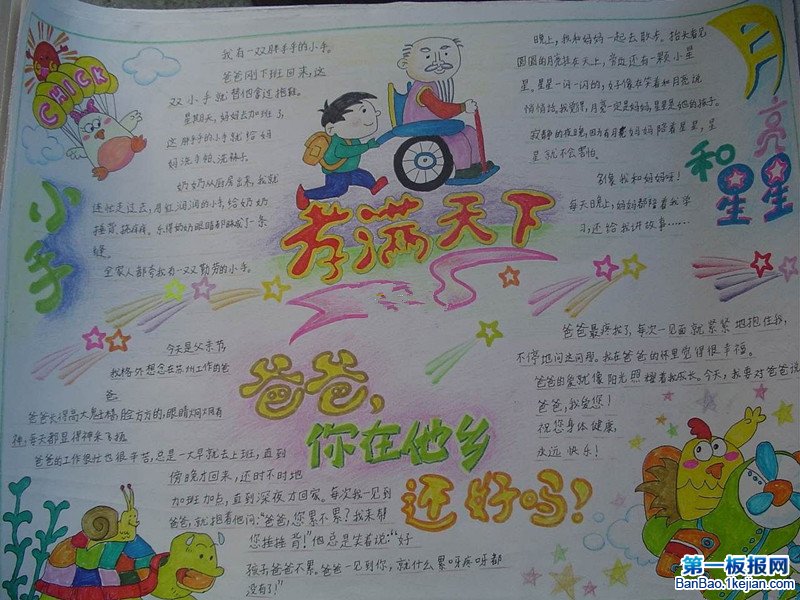 CHICK
小手
我有一双胖手手的小手。
爸爸刚下班回来，这
双小手就替他拿过拖鞋。
星期天，妈妈去加班了，
这胖手手的小手就给妈
妈洗手帕、洗袜子。
奶奶从厨房出来，我就
连忙走过去，用红润润的小手，给奶奶
捶背、挠痒痒，乐得奶奶眼睛都眯成了一条
缝。
全家人都夸我有一双勤劳的小手。
孝满天下
月亮和星星
晚上，我和妈妈一起去散步。抬头看见
圆圆的月亮挂在天上，旁边还有一颗小星
星，星星一闪一闪的，好像在笑着和月亮说
悄悄话。我觉得，月亮一定是妈妈，星星是她的孩子。
寂静的夜晚，因为有月亮妈妈陪着星星，星
星就不会害怕。
多像我和妈妈呀！
每天晚上，妈妈都陪着我学
习，还给我讲故事……
爸爸，
你在他乡
还好吗！
今天是父亲节，
我格外想念在苏州工作的爸
爸。
爸爸长得高大魁梧，脸方方的，眼睛炯炯有
神，每天都显得神采飞扬。
爸爸的工作很忙也很辛苦，总是一大早就去上班，直到
傍晚才回来，还时不时地
加班加点，直到深夜才回家。每次我一见到
爸爸，就抱着他问：“爸爸，您累不累？我来帮
您捶捶背！”他总是笑着说：“好
孩子爸爸不累。爸爸一见到你，就什么累呀疼呀都
没有了！”
爸爸最疼我了，每次一见面就紧紧地抱住我，
不停地问这问那。我在爸爸的怀里觉得很幸福。
爸爸的爱就像阳光照耀着我成长。今天，我要对爸爸说：
爸爸，我爱您！
祝您身体健康，
永远快乐！
第一板报网
BanBao.1kejian.com